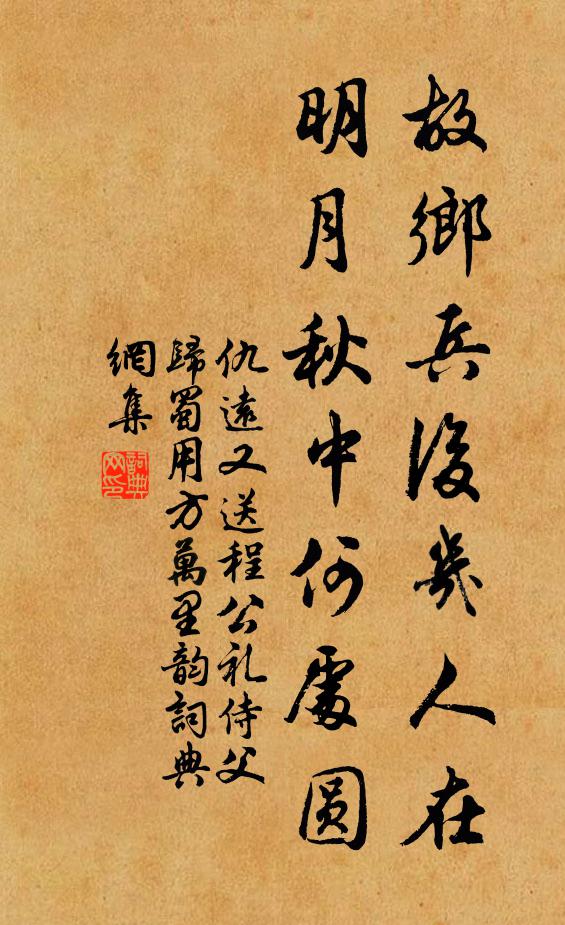 故鄉兵後幾人在
明月秋中何處圓
仇遠又送程公礼侍父
歸蜀用方萬里韵詞典
網集
詞典
网印